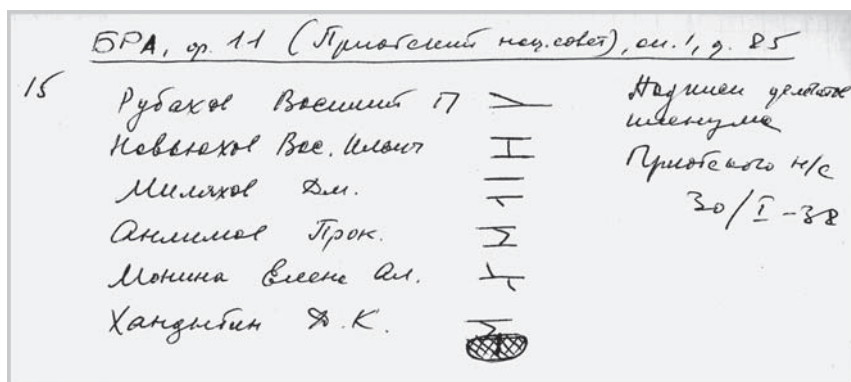 БРА, ор. 11 (Приобский нац. совет), оп. 1, д. 85
15
Рубахов Василий П
Невьюхов Вас. Ильич
Миляхов Дм.
Анлимов Прок.
Монина Елена Ал.
Хандыбин Д. К.
Подписи
пленума
Приобского н/с
30/I-38